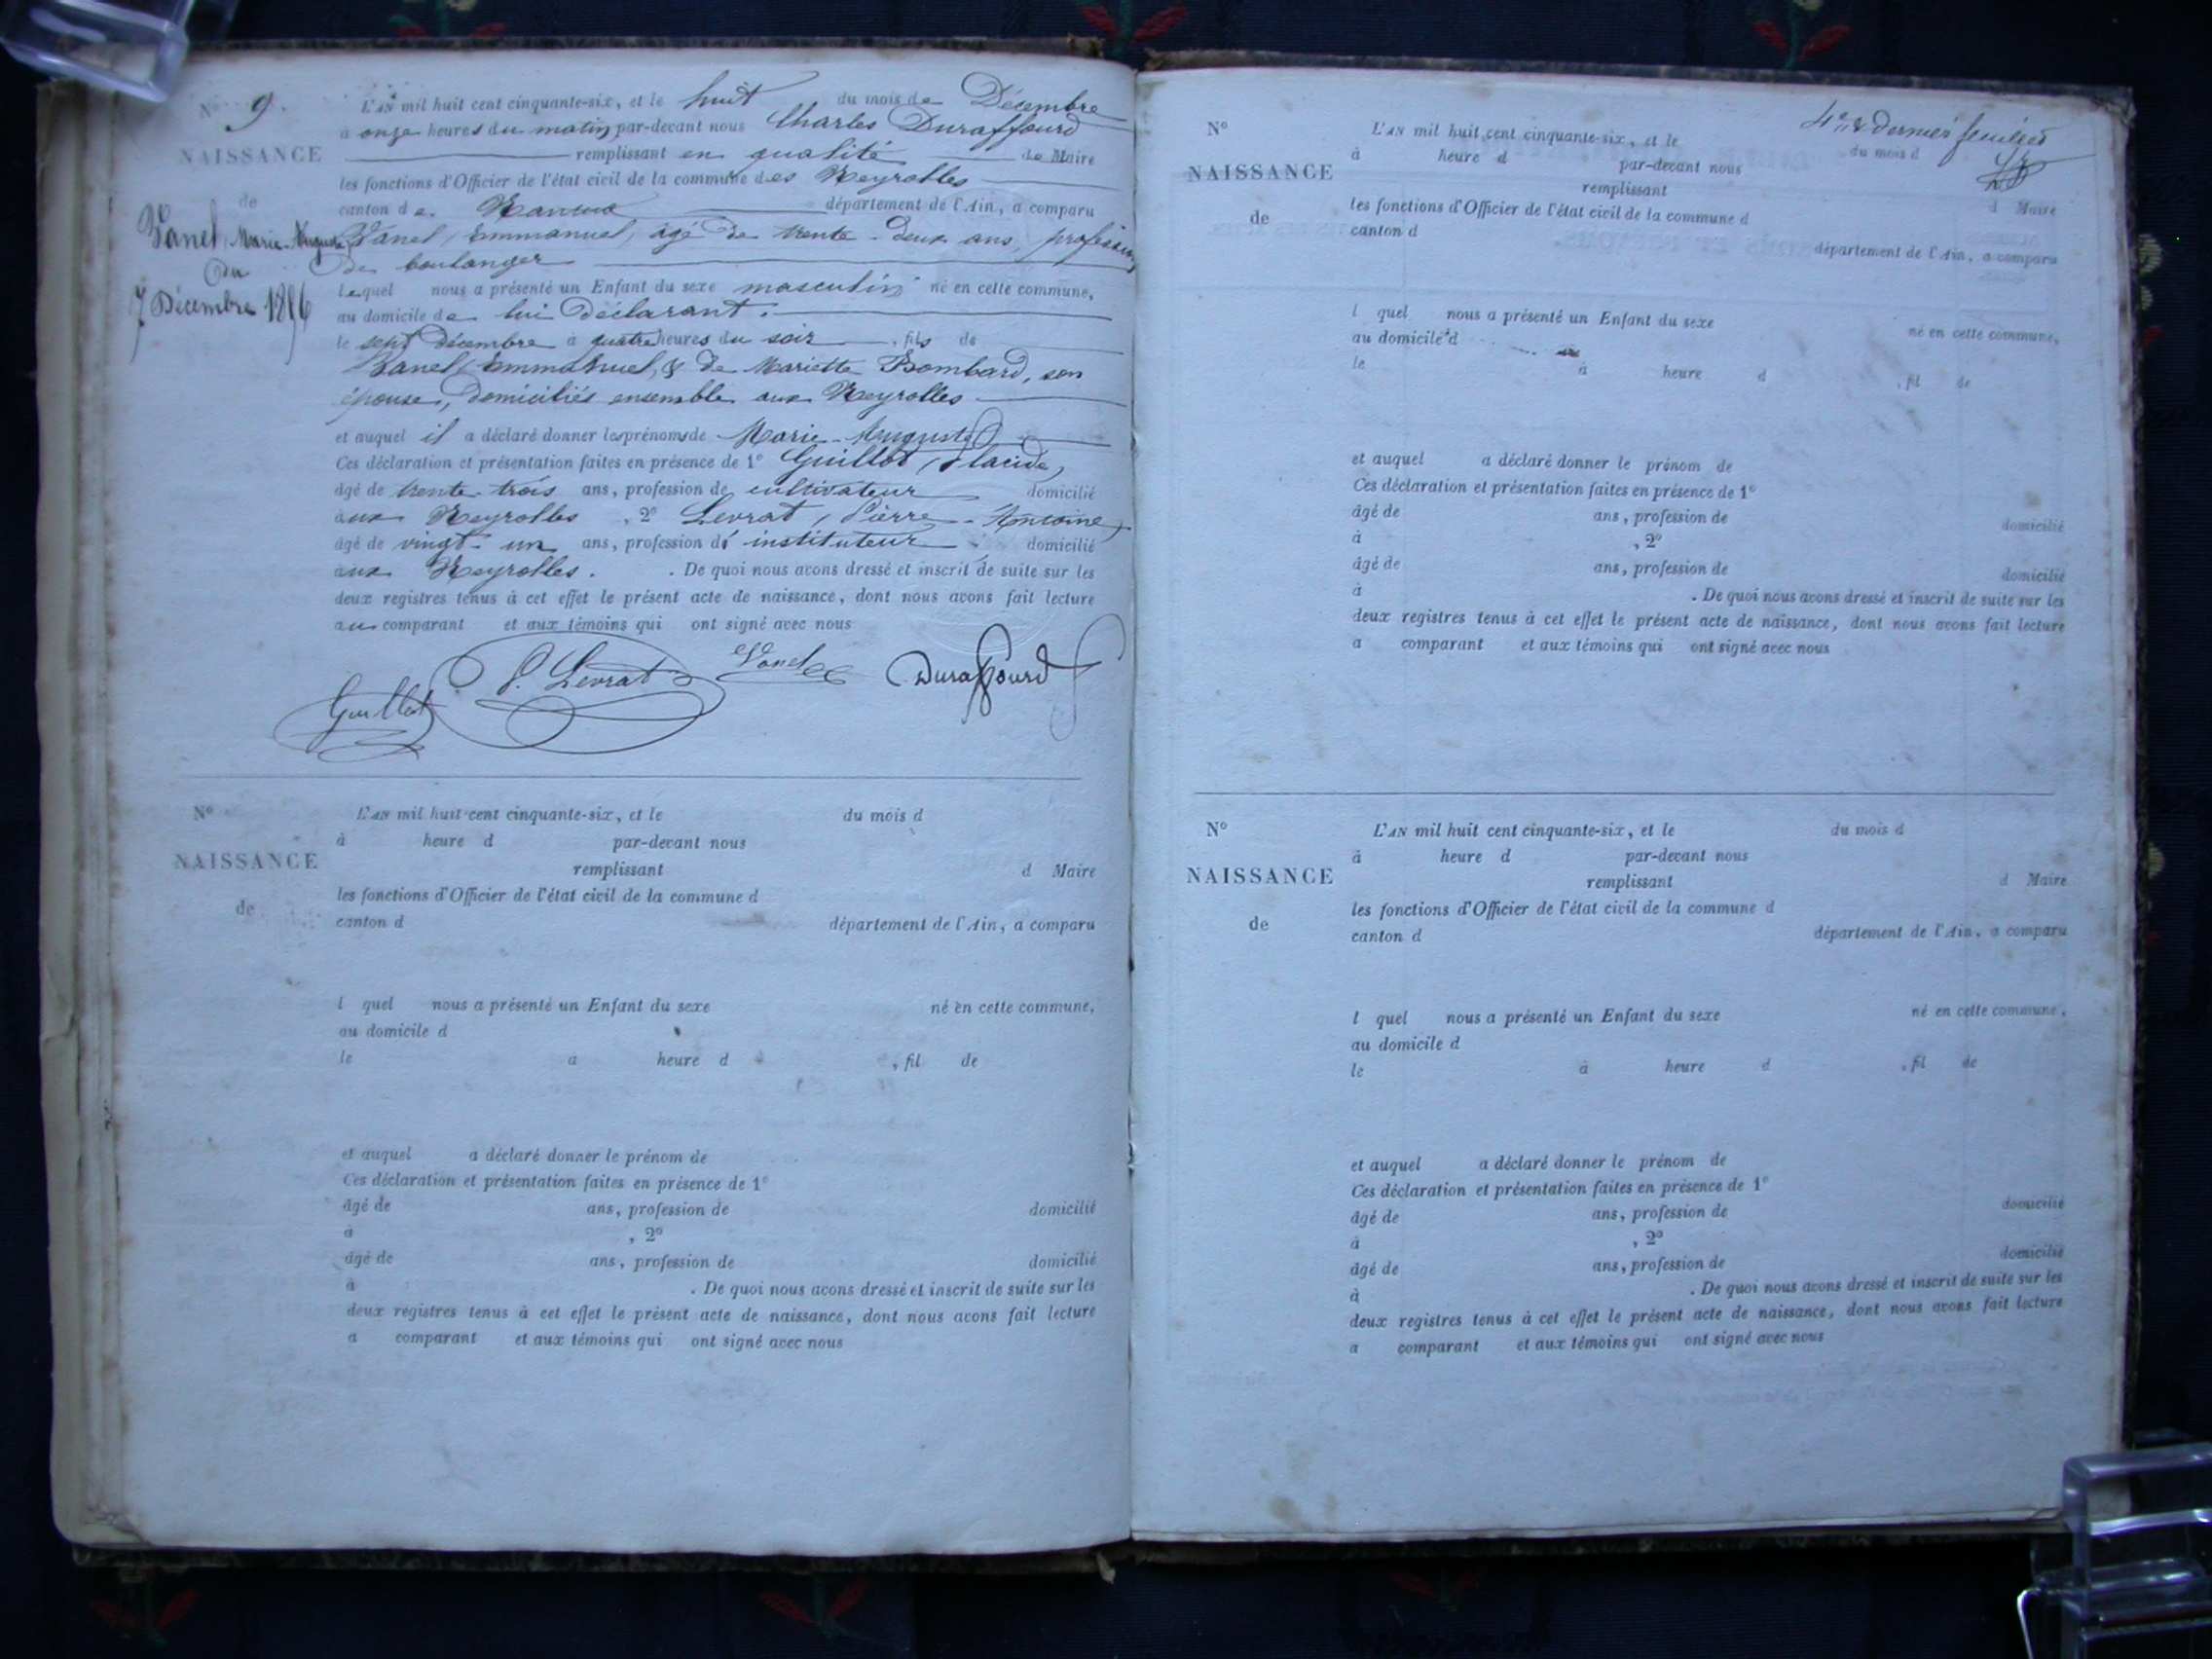 N° 9.
NAISSANCE
de
Vanel, Marie-Auguste
du
7 Décembre 1856
L'AN mil huit cent cinquante-six, et le huit du mois de Décembre
à onze heures du matin, par-devant nous Charles Duraffourd
remplissant en qualité de Maire
les fonctions d'Officier de l'état civil de la commune des Neyrolles
canton de Nantua département de l'Ain, a comparu
Vanel, Emmanuel, âgé de trente-deux ans, profession
de boulanger
lequel nous a présenté un Enfant du sexe masculin né en cette commune,
au domicile de lui déclarant.
le sept Décembre à quatre heures du soir, fils de
Vanel, Emmanuel, & de Mariette Bombard, son
épouse, domiciliés ensemble aux Neyrolles
et auquel il a déclaré donner les prénoms de Marie-Auguste
Ces déclaration et présentation faites en présence de 1° Guillot, Placide,
âgé de trente-trois ans, profession de cultivateur domicilié
aux Neyrolles, 2° Levrat, Pierre-Antoine,
âgé de vingt-un ans, profession d'instituteur domicilié
aux Neyrolles. De quoi nous avons dressé et inscrit de suite sur les
deux registres tenus à cet effet le présent acte de naissance, dont nous avons fait lecture
au comparant et aux témoins qui ont signé avec nous
Guillot P. Levrat Vanel Duraffourd
N°
NAISSANCE
de
L'AN mil huit cent cinquante-six, et le du mois d
à heure d par-devant nous
remplissant d Maire
les fonctions d'Officier de l'état civil de la commune d
canton d département de l'Ain, a comparu
l quel nous a présenté un Enfant du sexe né en cette commune,
au domicile d
le à heure d , fil de
et auquel a déclaré donner le prénom de
Ces déclaration et présentation faites en présence de 1°
âgé de ans, profession de domicilié
à , 2°
âgé de ans, profession de domicilié
à . De quoi nous avons dressé et inscrit de suite sur les
deux registres tenus à cet effet le présent acte de naissance, dont nous avons fait lecture
a comparant et aux témoins qui ont signé avec nous
4e & dernier feuillet
N°
NAISSANCE
de
L'AN mil huit cent cinquante-six, et le du mois d
à heure d par-devant nous
remplissant d Maire
les fonctions d'Officier de l'état civil de la commune d
canton d département de l'Ain, a comparu
l quel nous a présenté un Enfant du sexe né en cette commune,
au domicile d
le à heure d , fil de
et auquel a déclaré donner le prénom de
Ces déclaration et présentation faites en présence de 1°
âgé de ans, profession de domicilié
à , 2°
âgé de ans, profession de domicilié
à . De quoi nous avons dressé et inscrit de suite sur les
deux registres tenus à cet effet le présent acte de naissance, dont nous avons fait lecture
a comparant et aux témoins qui ont signé avec nous
N°
NAISSANCE
de
L'AN mil huit cent cinquante-six, et le du mois d
à heure d par-devant nous
remplissant d Maire
les fonctions d'Officier de l'état civil de la commune d
canton d département de l'Ain, a comparu
l quel nous a présenté un Enfant du sexe né en cette commune,
au domicile d
le à heure d , fil de
et auquel a déclaré donner le prénom de
Ces déclaration et présentation faites en présence de 1°
âgé de ans, profession de domicilié
à , 2°
âgé de ans, profession de domicilié
à . De quoi nous avons dressé et inscrit de suite sur les
deux registres tenus à cet effet le présent acte de naissance, dont nous avons fait lecture
a comparant et aux témoins qui ont signé avec nous